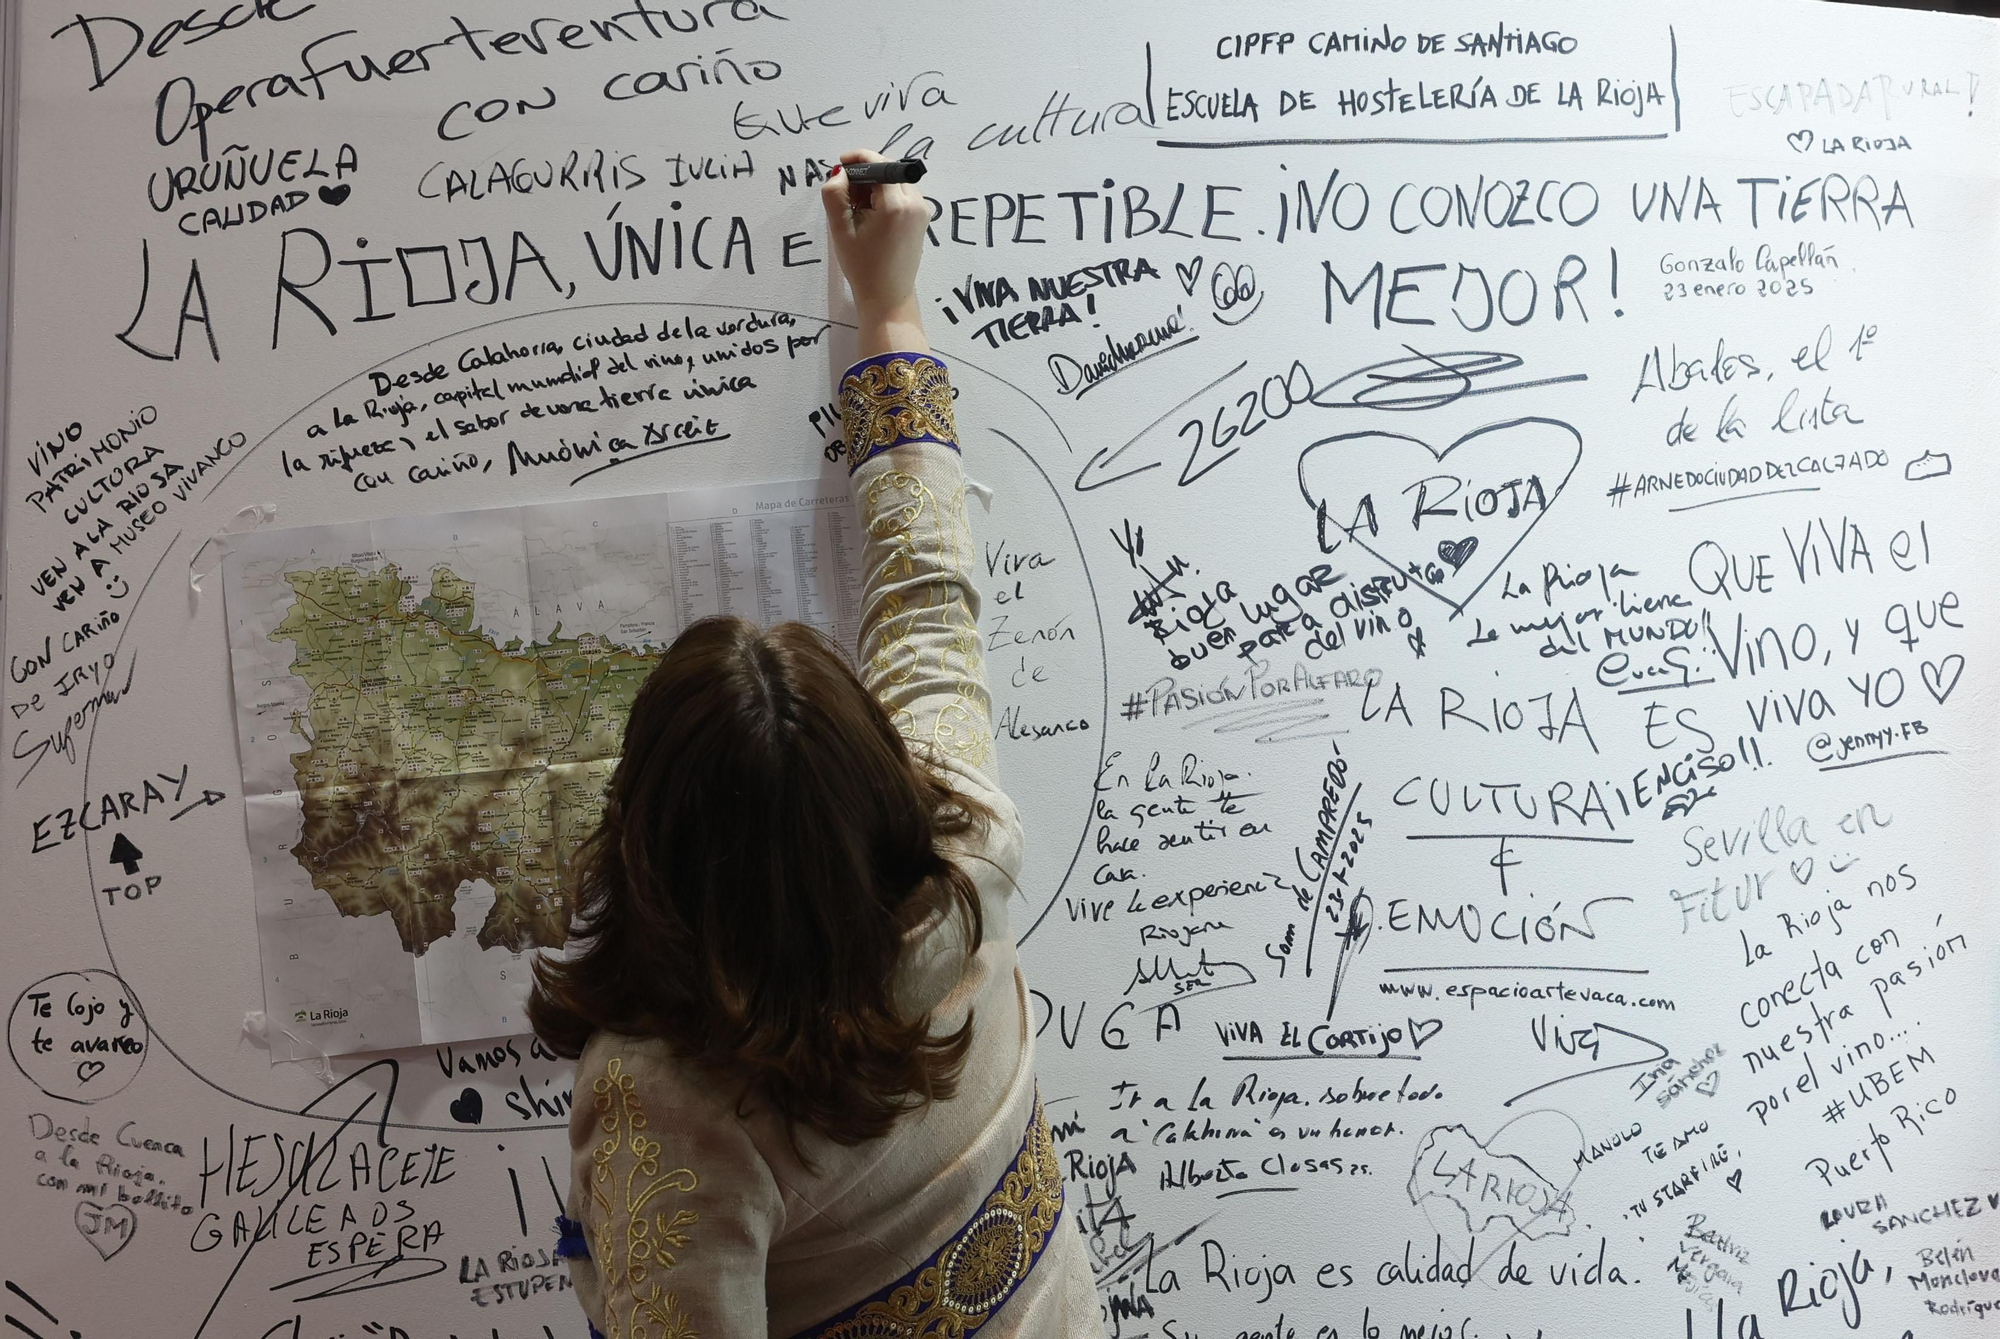 Desde
OperaFuerteventura
con cariño
Que viva
la cultura
CIPFP CAMINO DE SANTIAGO
ESCUELA DE HOSTELERÍA DE LA RIOJA
ESCAPADA RURAL!
LA RIOJA
URUÑUELA
CALIDAD
CALAGURRIS IULIA NAS
LA RIOJA, ÚNICA E REPETIBLE. ¡NO CONOZCO UNA TIERRA
MEJOR!
Gonzalo Capellán
23 enero 2025
¡VIVA NUESTRA
TIERRA!
Desde Calahorra, ciudad de la verdura,
a la Rioja, capital mundial del vino, unidos por
la riqueza y el sabor de una tierra única
con cariño,
26200
Abales, el 1º
de la lista
#ARNEDOCIUDADDELCALZADO
LA RIOJA
VINO
PATRIMONIO
CULTURA
VEN A LA RIOJA
VEN A MUSEO VIVANCO
CON CARIÑO
DE IRYO
Mapa de Carreteras
ÁLAVA
La Rioja
Viva
el
Zenón
de
Alesanco
Yo
Rioja
buen lugar
para disfrutar
del vino
#PASIÓNPORALFARO
La Rioja
La mejor tiene
del MUNDO!!
QUE VIVA el
Vino, y que
viva YO
@jennyy.FB
LA RIOJA ES
CULTURA
EMOCIÓN
www.espacioartevaca.com
¡ENCISO!!
En La Rioja.
la gente te
hace sentir en
casa.
Vive la experiencia
Riojana
SER
Som de CAMPREDÓ
23-1-2025
Sevilla en
Fitur
La Rioja nos
conecta con
nuestra pasión
por el vino....
#UBEM
Puerto Rico
EZCARAY
TOP
Te cojo y
te avareo
Vamos a
VIVA EL CORTIJO
Viva
Ina
Sánchez
Ir a la Rioja. sobretodo
a "Calahorra" es un honor.
Alberto Closas 25.
LA RIOJA
MANOLO
TE AMO
TU STARFIRE,
Desde Cuenca
a la Rioja.
con mi bollito
JM
GALILEA OS
ESPERA
LA RIOJA
RIOJA
Beatriz
Vergara
LAURA
SANCHEZ
Belén
Monclova
La Rioja es calidad de vida.
Su gente es lo mejor.
La Rioja,